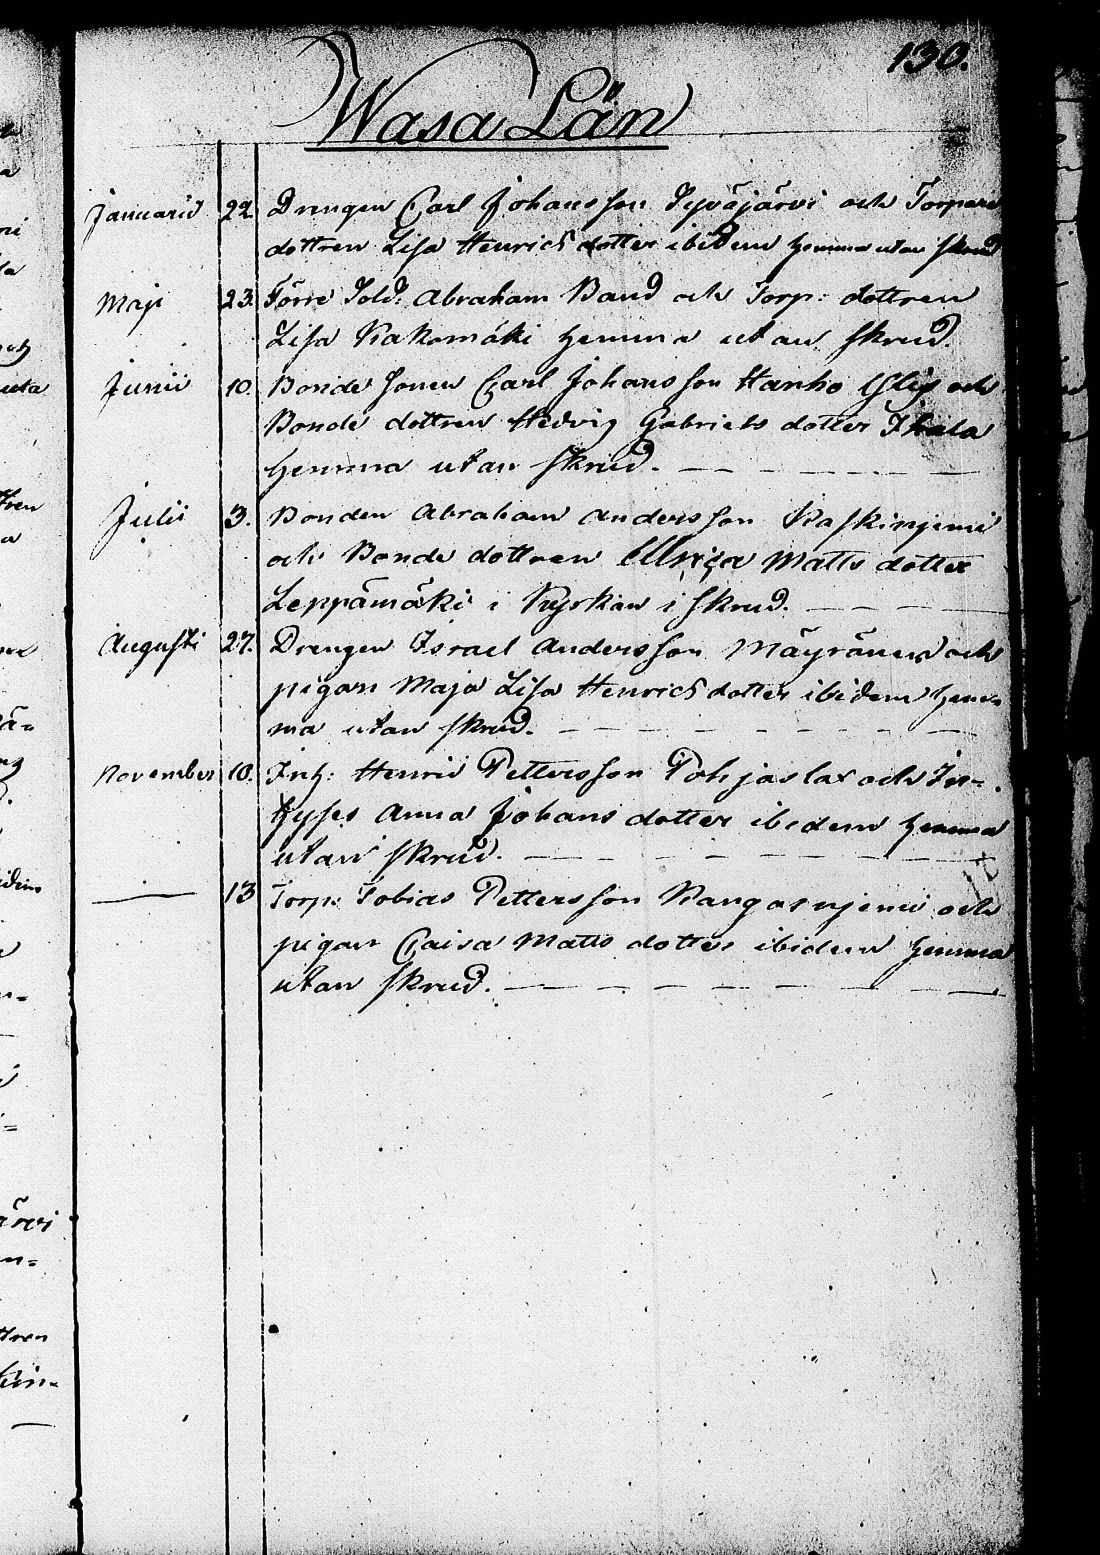 130.
Wasa Län
Januarii 22. Drengen Carl Johansson Syväjärvi och Torpare
dottren Lisa Henrichsdotter ibidem hemma utan skrud
Maji 23. Förre Sold: Abraham Band och Torp: dottren
Lisa Kakomäki hemma utan skrud.
Junii 10. Bonde Sonen Carl Johansson Hanho och
Bonde dottren Hedvig Gabriels dotter Ikola
hemma utan skrud.
Julii 3. Bonden Abraham Andersson Kaskinjemi
och Bonde dottren Ulrica Matts dotter
Leppämäki i Kyrkan i skrud.
Augusti 27. Drengen Israel Andersson Mäyränen och
pigan Maja Lisa Henrichsdotter ibidem hem-
ma utan skrud.
November 10. Inh: Henric Pettersson Pohjaslax och In-
hyses Anna Johans dotter ibidem hemma
utan skrud.
— 13 Torp: Tobias Pettersson Kangasnjemi och
pigan Caisa Matts dotter ibidem hemma
utan skrud.